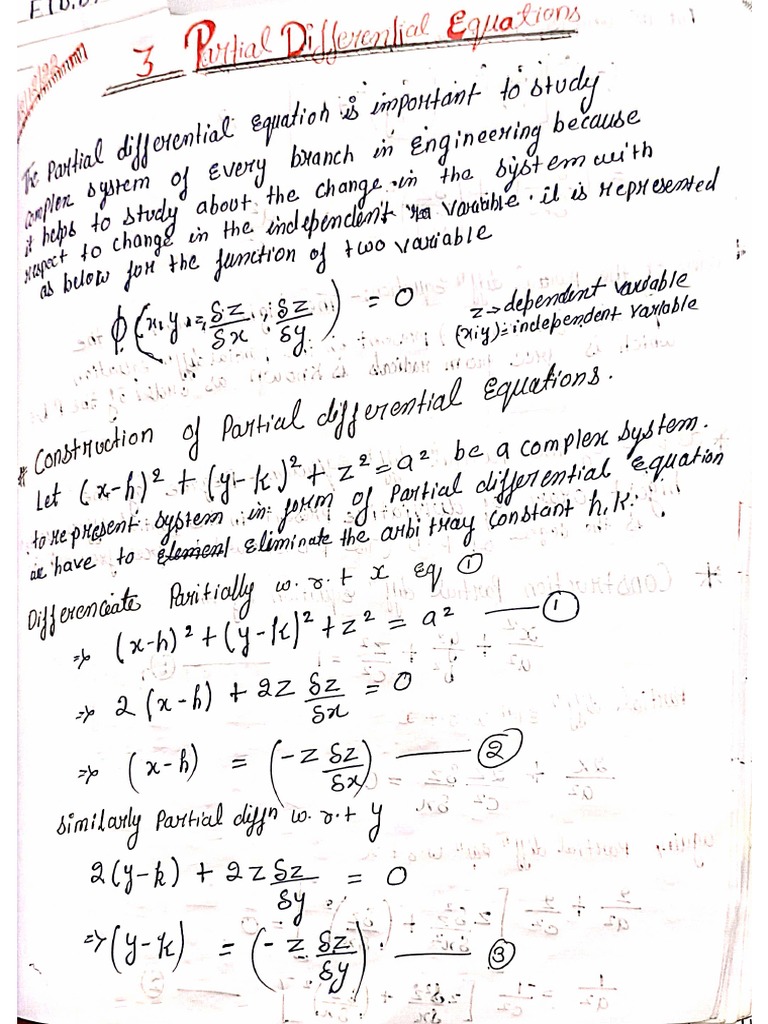 3 Partial Differential Equations
The Partial differential Equation is important to study
complex system of Every branch in Engineering because
it helps to study about the change in the system with
respect to change in the independent variable. it is represented
as below for the function of two variable
ϕ(x, y, z, δz/δx, δz/δy) = 0
z → dependent variable
(x,y) = independent variable
* Construction of Partial differential Equations.
Let (x-h)² + (y-k)² + z² = a² be a complex system.
to represent system in form of Partial differential Equation
we have to element eliminate the arbitray constant h, k.
Differenciate Paritially w.r.t x Eq ①
⇒ (x-h)² + (y-k)² + z² = a² —— ①
⇒ 2(x-h) + 2z δz/δx = 0
⇒ (x-h) = (-z δz/δx) —— ②
Similarly Partial diffⁿ w.r.t y
2(y-k) + 2z δz/δy = 0
⇒ (y-k) = (-z δz/δy) —— ③